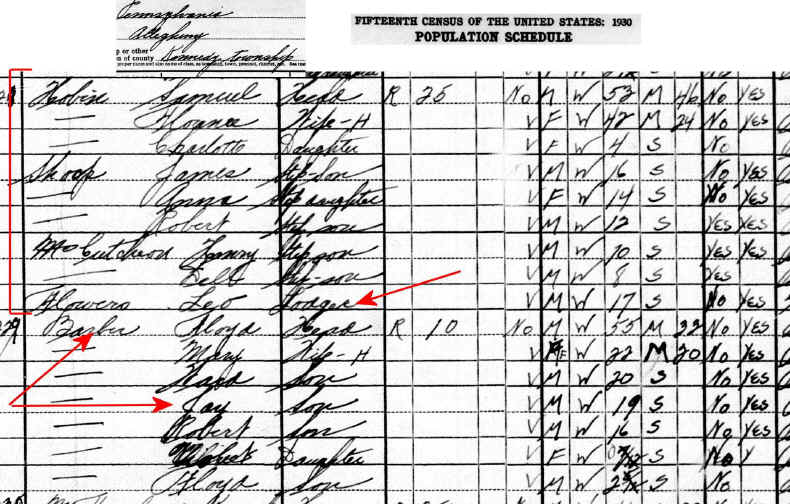 Pennsylvania
FIFTEENTH CENSUS OF THE UNITED STATES: 1930
Allegheny
POPULATION SCHEDULE
p or other
n of county Kennedy township
Samuel Head R 25 No M W 53 M 46 No YES
Wife-H V F W 42 M 24 No YES
Charlotte Daughter V F W 4 S No
Shoop James Step-Son V M W 16 S No YES
Anna Step daughter V F W 14 S No YES
Robert Step son V M W 12 S YES YES
McCutcheon Step son V M W 10 S YES YES
Step-son V M W 8 S YES
Flowers Leo Lodger V M W 17 S No YES
Barber Lloyd Head R 10 No M W 55 M 22 No YES
Mary Wife-H V F W 22 M 20 No YES
Ward Son V M W 20 S No YES
Jay Son V M W 19 S No YES
Robert Son V M W 16 S No YES
Daughter V F W S No Y
Lloyd Son V M W S No